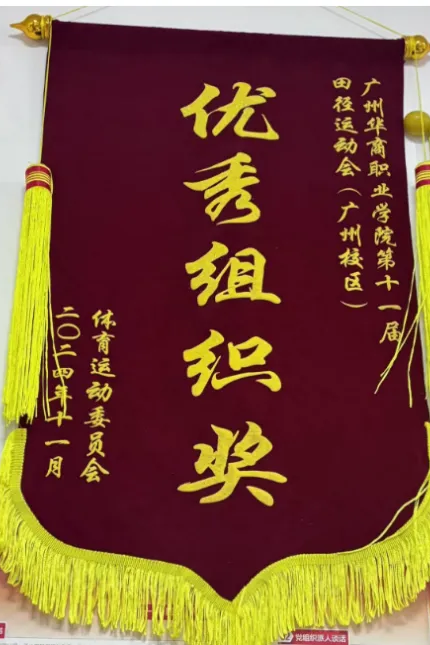 广州华商职业学院第十一届
田径运动会（广州校区）
优秀组织奖
体育运动委员会
二〇二四年十一月
党组织派人谈话